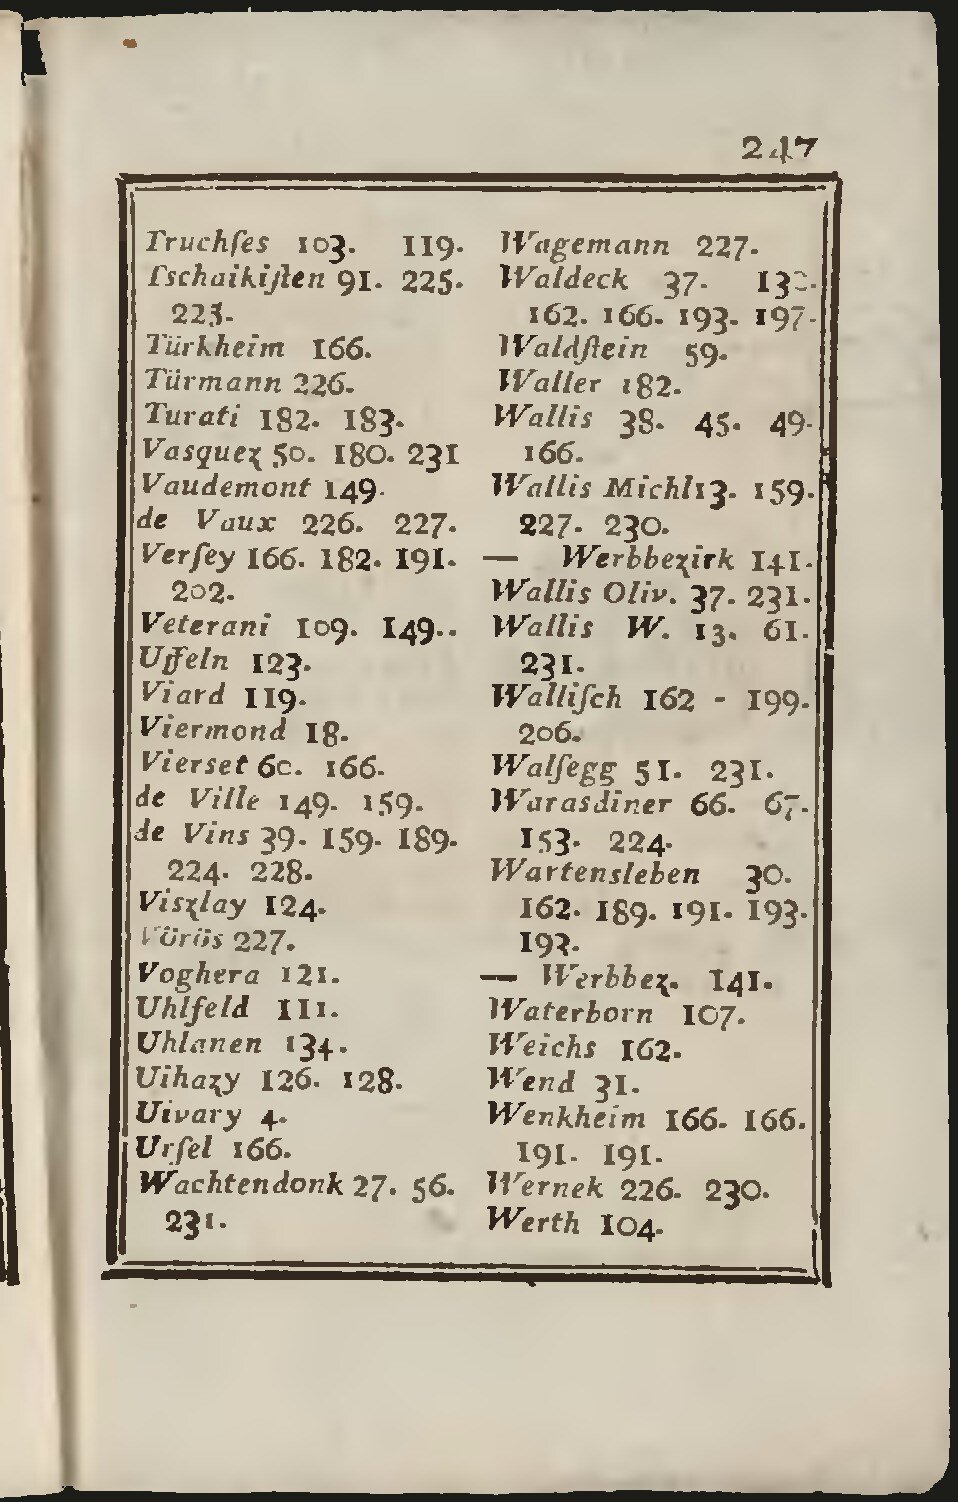 247
Truchſes 103. 119.
Tschaikiſten 91. 225.
225.
Türkheim 166.
Türmann 226.
Turati 182. 183.
Vasquez 50. 180. 231
Vaudemont 149.
de Vaux 226. 227.
Verſey 166. 182. 191.
202.
Veterani 109. 149..
Uffeln 123.
Viard 119.
Viermond 18.
Vierset 60. 166.
de Ville 149. 159.
de Vins 39. 159. 189.
224. 228.
Viszlay 124.
Vörös 227.
Voghera 121.
Uhlfeld 111.
Uhlanen 134.
Uihazy 126. 128.
Uivary 4.
Urſel 166.
Wachtendonk 27. 56.
231.
Wagemann 227.
Waldeck 37.
162. 166. 193. 197.
Waldſtein 59.
Waller 182.
Wallis 38. 45. 49.
166.
Wallis Michl 13. 159.
227. 230.
— Werbbezirk 141.
Wallis Oliv. 37. 231.
Wallis W. 13. 61.
231.
Walliſch 162 - 199.
206.
Walſegg 51. 231.
Warasdiner 66. 67.
153. 224.
Wartensleben 30.
162. 189. 191. 193.
193.
— Werbbez. 141.
Waterborn 107.
Weichs 162.
Wend 31.
Wenkheim 166. 166.
191. 191.
Wernek 226. 230.
Werth 104.